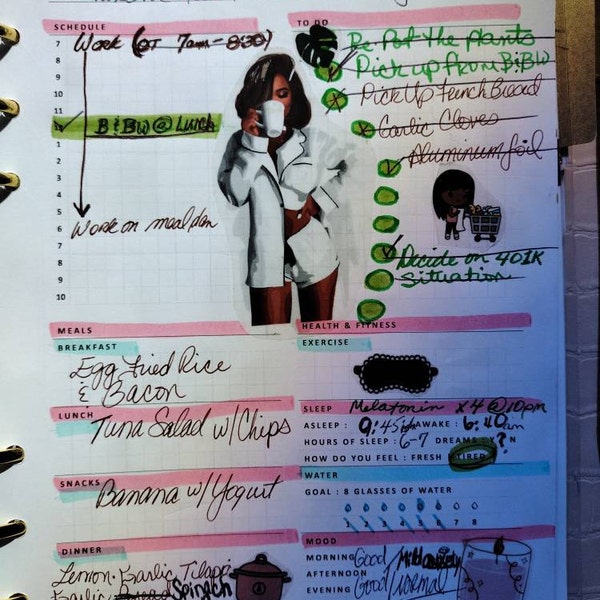 SCHEDULE
7 Work (OT 7am-8:30)
8
9
10
11 B&BW @ Lunch
12
1
2
3
4
5
6 Work on meal plan
7
8
9
10
TO DO
Re Pot the plants
Pick up from B&BW
Pick Up French Bread
Garlic Cloves
Aluminum foil
Decide on 401K
Situation
MEALS
BREAKFAST
Egg Fried Rice
& Bacon
LUNCH
Tuna Salad w/ Chips
SNACKS
Banana w/ Yogurt
DINNER
Lemon Garlic Tilapia
Garlic Spinach
HEALTH & FITNESS
EXERCISE
SLEEP Melatonin x4 @ 10pm
ASLEEP : 9:45pm AWAKE : 6:40am
HOURS OF SLEEP : 6-7 DREAMS : Y ? N
HOW DO YOU FEEL : FRESH TIRED
WATER
GOAL : 8 GLASSES OF WATER
1 2 3 4 5 6 7 8
MOOD
MORNING Good /
AFTERNOON
EVENING Good / normal